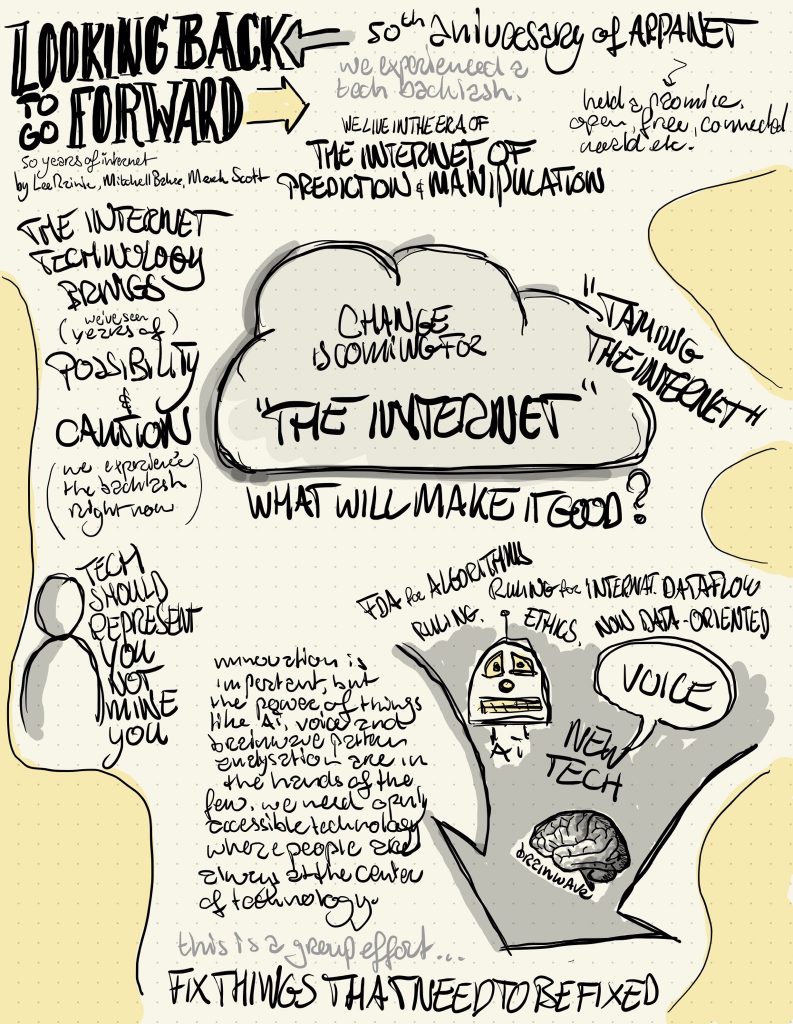 LOOKING BACK
TO GO FORWARD
50 years of internet
by Lee Mitchell Baker, Mark Scott
50th aniversary of ARPANET
we experienced a
tech backlash.
held a promise.
open, free, connected
world etc.
WE LIVE IN THE ERA OF
THE INTERNET OF
PREDICTION & MANIPULATION
THE INTERNET
TECHNOLOGY
BRINGS
(we've seen
years of)
POSSIBILITY
&
CAUTION
(we experience
the backlash
right now)
CHANGE
IS COMING FOR
"THE INTERNET"
"TAMING
THE INTERNET"
WHAT WILL MAKE IT GOOD?
TECH
SHOULD
REPRESENT
YOU
NOT
MINE
YOU
FDA for ALGORITHMS
RULING.
RULING for INTERNAT. DATAFLOW
ETHICS, NON DATA-ORIENTED
innovation is
important, but
the power of things
like Ai, voice and
brainwave pattern
analysation are in
the hands of the
few. we need openly
accessible technology
where people are
always at the center
of technology.
Ai
VOICE
NEW
TECH
brainwave
this is a group effort...
FIX THINGS THAT NEED TO BE FIXED